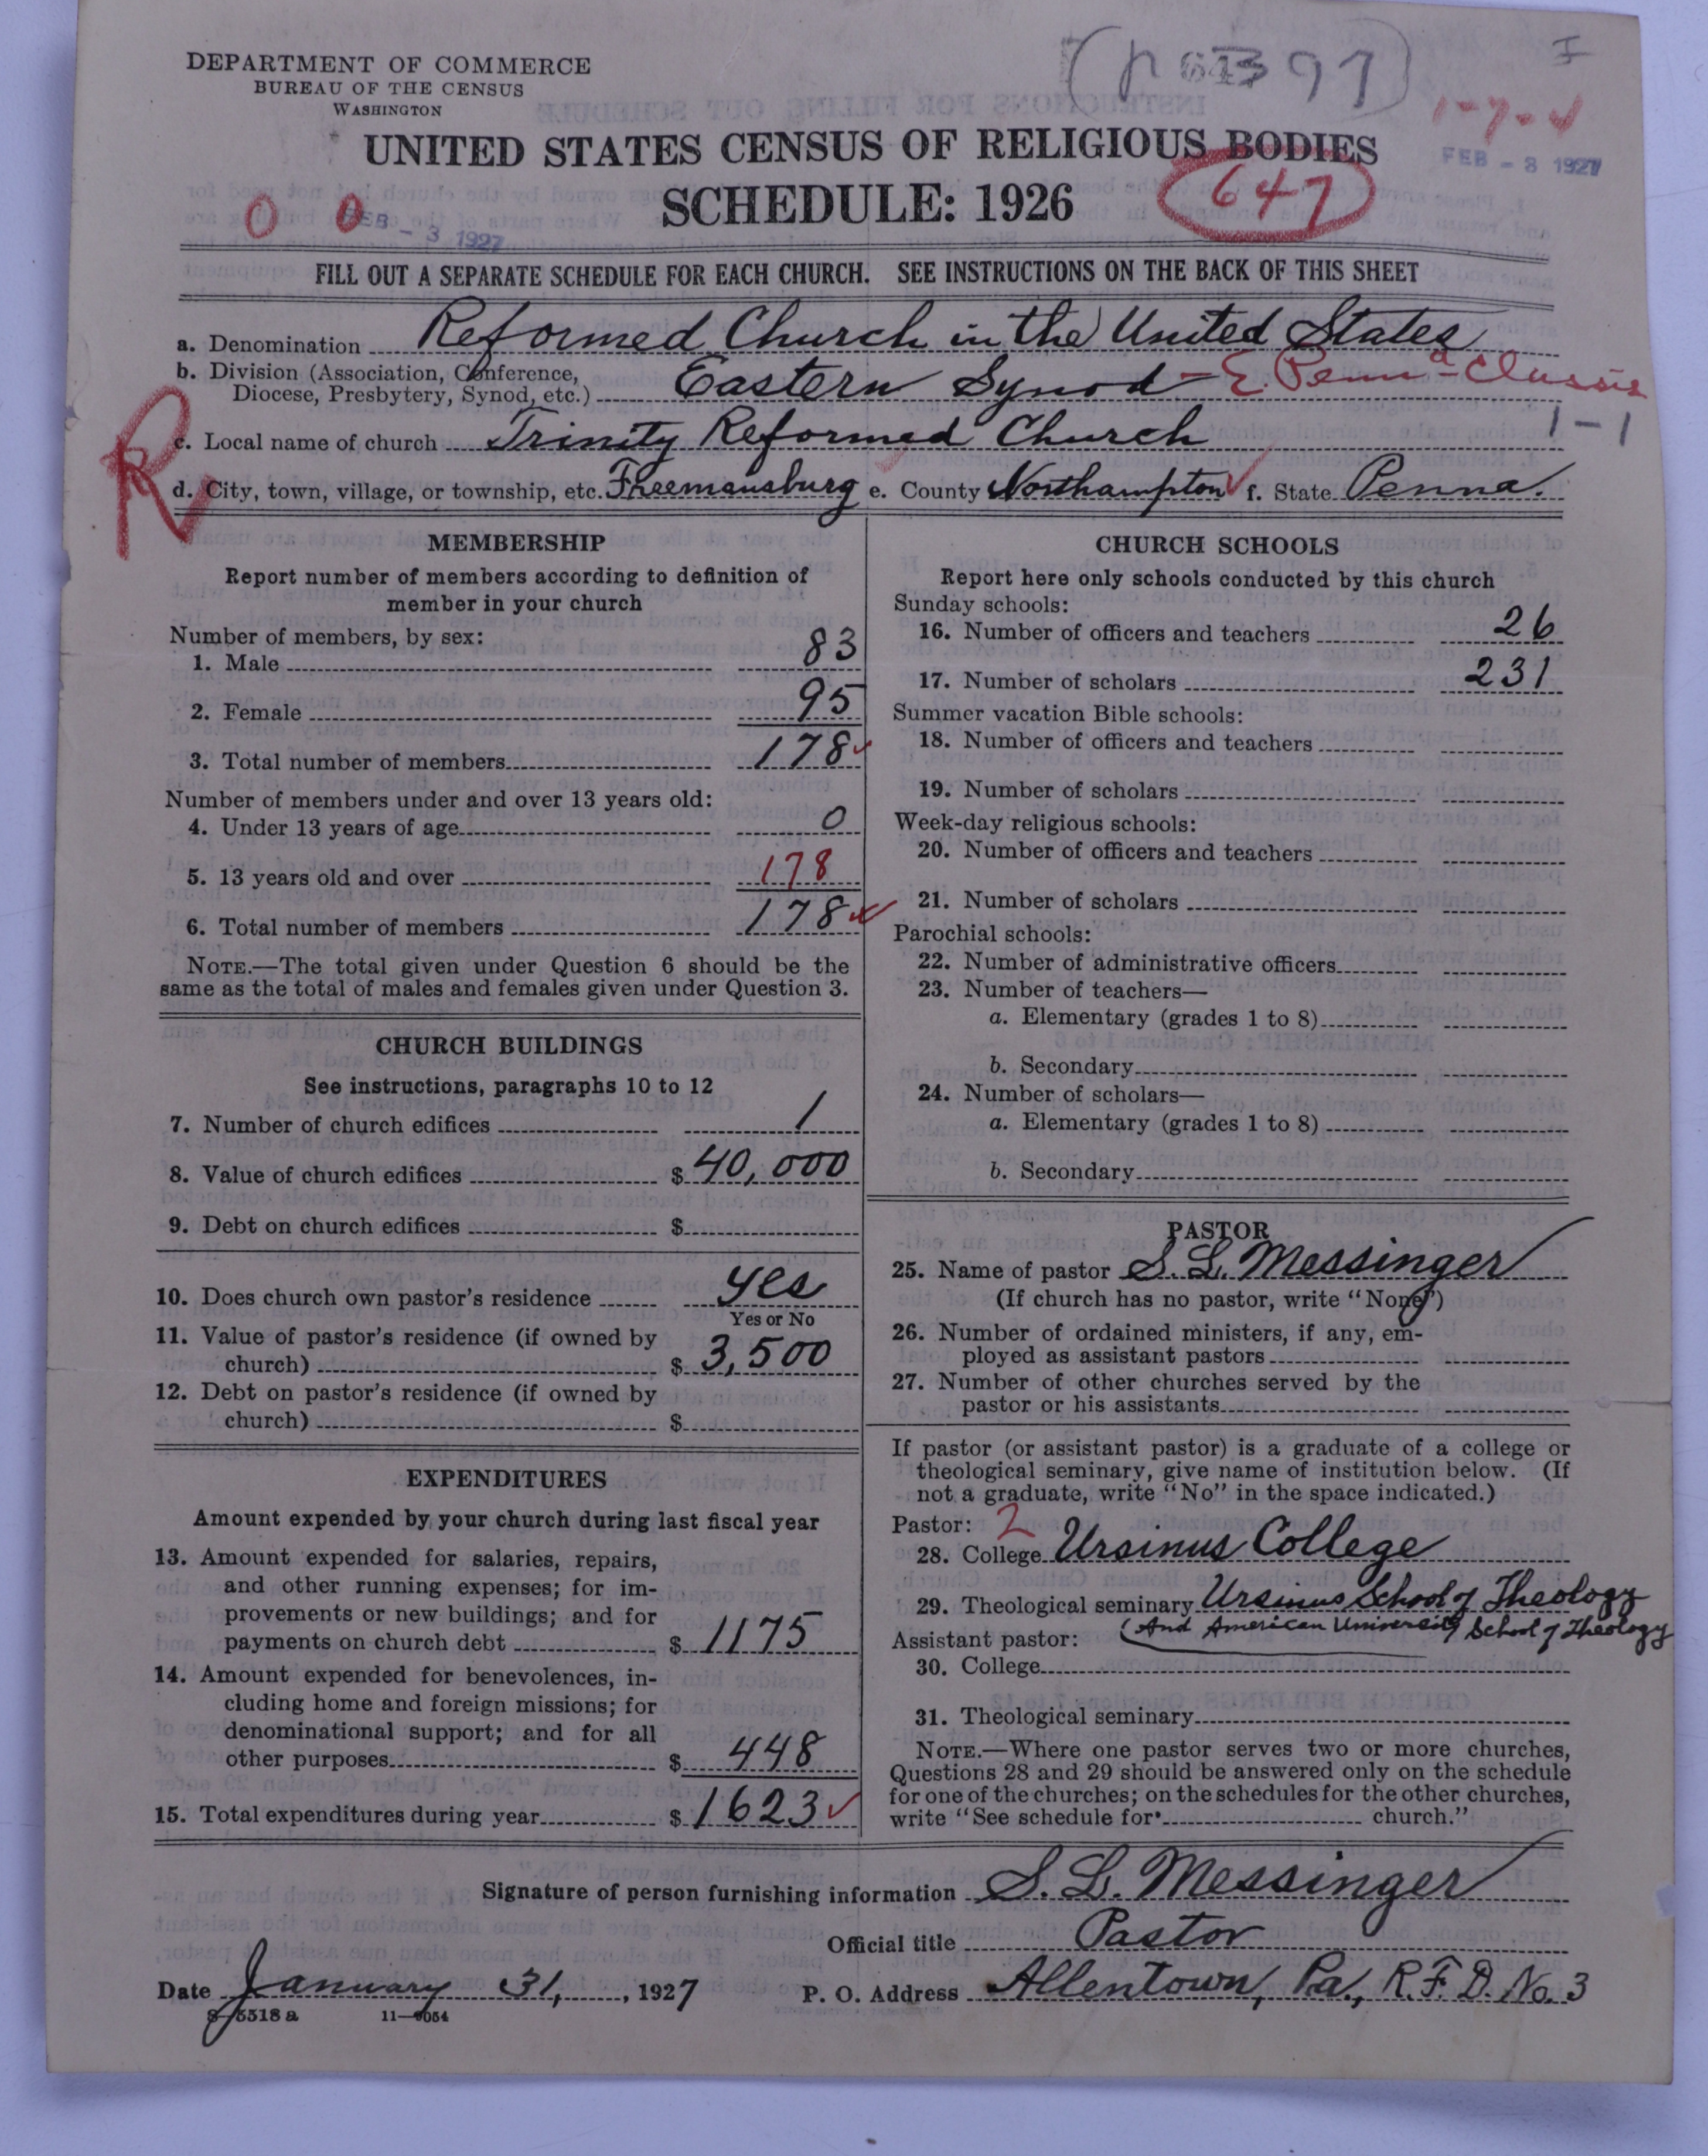 DEPARTMENT OF COMMERCE
BUREAU OF THE CENSUS
WASHINGTON
1-7-4
UNITED STATES CENSUS OF RELIGIOUS BODIES
FEB - 3 1927
SCHEDULE: 1926
647
0 0
FEB - 3 1927
FILL OUT A SEPARATE SCHEDULE FOR EACH CHURCH. SEE INSTRUCTIONS ON THE BACK OF THIS SHEET
a. Denomination Reformed Church in the United States
b. Division (Association, Conference,
Diocese, Presbytery, Synod, etc.) Eastern Synod - E. Penna Classis
1-1
R
c. Local name of church Trinity Reformed Church
d. City, town, village, or township, etc. Freemansburg e. County Northampton f. State Penna.
MEMBERSHIP
Report number of members according to definition of
member in your church
Number of members, by sex:
1. Male 83
2. Female 95
3. Total number of members 178
Number of members under and over 13 years old:
4. Under 13 years of age 0
5. 13 years old and over 178
6. Total number of members 178
NOTE.—The total given under Question 6 should be the
same as the total of males and females given under Question 3.
CHURCH BUILDINGS
See instructions, paragraphs 10 to 12
7. Number of church edifices 1
8. Value of church edifices $ 40,000
9. Debt on church edifices $
10. Does church own pastor's residence yes
Yes or No
11. Value of pastor's residence (if owned by
church) $ 3,500
12. Debt on pastor's residence (if owned by
church) $
EXPENDITURES
Amount expended by your church during last fiscal year
13. Amount expended for salaries, repairs,
and other running expenses; for im-
provements or new buildings; and for
payments on church debt $ 1175
14. Amount expended for benevolences, in-
cluding home and foreign missions; for
denominational support; and for all
other purposes $ 448
15. Total expenditures during year $ 1623
CHURCH SCHOOLS
Report here only schools conducted by this church
Sunday schools:
16. Number of officers and teachers 26
17. Number of scholars 231
Summer vacation Bible schools:
18. Number of officers and teachers
19. Number of scholars
Week-day religious schools:
20. Number of officers and teachers
21. Number of scholars
Parochial schools:
22. Number of administrative officers
23. Number of teachers—
a. Elementary (grades 1 to 8)
b. Secondary
24. Number of scholars—
a. Elementary (grades 1 to 8)
b. Secondary
PASTOR
25. Name of pastor S. L. Messinger
(If church has no pastor, write "None")
26. Number of ordained ministers, if any, em-
ployed as assistant pastors
27. Number of other churches served by the
pastor or his assistants
If pastor (or assistant pastor) is a graduate of a college or
theological seminary, give name of institution below. (If
not a graduate, write "No" in the space indicated.)
Pastor: 2
28. College Ursinus College
29. Theological seminary Ursinus School of Theology
(And American University School of Theology
Assistant pastor:
30. College
31. Theological seminary
NOTE.—Where one pastor serves two or more churches,
Questions 28 and 29 should be answered only on the schedule
for one of the churches; on the schedules for the other churches,
write "See schedule for church."
Signature of person furnishing information S. L. Messinger
Official title Pastor
Date January 31, , 1927 P. O. Address Allentown, Pa., R. F. D. No. 3
8-5518 a 11-9054